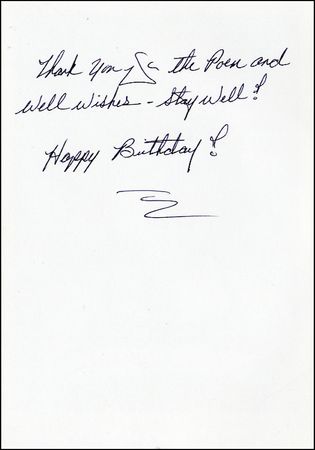 Thank You for the Poem and
Well Wishes - Stay Well!
Happy Birthday!